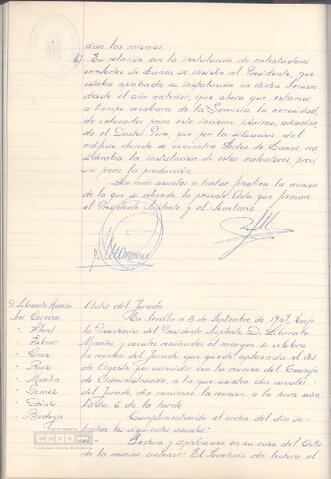 ñan las mismas.
6) En relación con la instalación de calentadores
en Lotes de Lanas, se insistió al Presidente, que
estaba aprobada su instalación en dicha Sección
desde el año anterior, que ahora que estamos
a tiempo recabara de la Gerencia la necesidad,
de colocarlos para este invierno próximo, añadien-
do el Doctor Pons, que por la situación del
edificio donde se encuentra Lotes de Lanas, con
sideraba la instalación de estos calentores, preci
sa para la producción.
Sin más asuntos a tratar finaliza la reunión
de la que se extiende la presente Acta que firman
el Presidente Suplente y el Secretario.
D. Liberato Mariño
Acta del Jurado
Sres Carrión
En Sevilla a 5 de Septiembre de 1969, bajo
la Presidencia del Presidente Suplente D. Liberato
Mariño, y vocales reseñados al margen se celebra
la reunión del Jurado que quedó aplazada el 31
" Cruz
" Ruiz
de Agosto por coincidir con la reunión del Consejo
" Martín
de Administración, a la que asisten dos vocales
" Gomez
del Jurado, dio comienzo la reunión a la hora seña
" Diaz
lada 6 de la tarde.
" Pantoja
Cumplimentando el orden del día se
tratan los siguientes asuntos:
Lectura y aprobación en su caso del Acta
de la reunión anterior. El Secretario da lectura al
CCOO